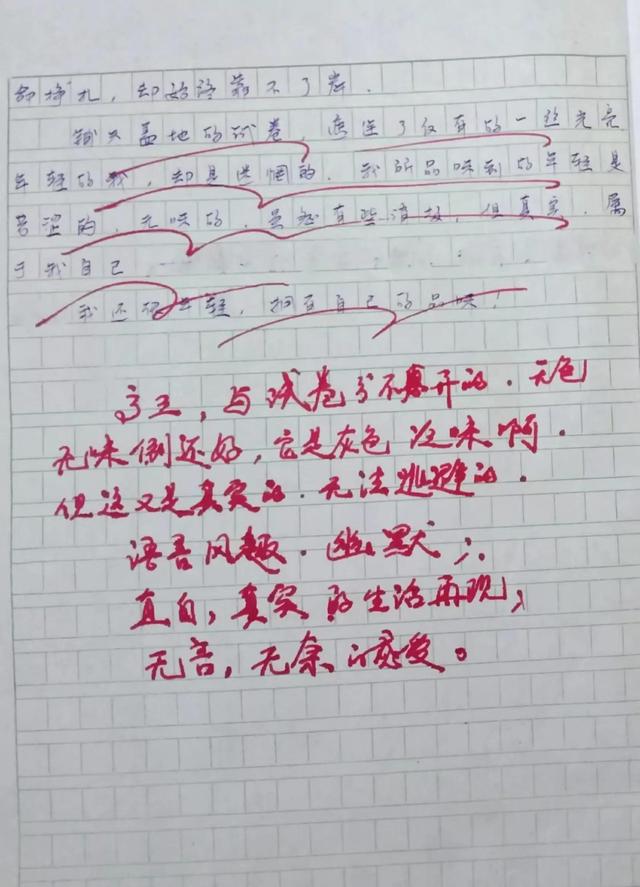 命挣扎，却始终靠不了岸．
铺天盖地的试卷，遮住了仅有的一丝光亮
年轻的我，却是迷惘的．我所品味到的年轻是
苦涩的，无味的．虽然有些消极，但真实．属
于我自己
我还很年轻，拥有自己的品味！
高三，与试卷分不离开的．无色
无味倒还好，它是灰色 没味啊．
但这又是真实的．无法逃避的．
语言风趣．幽默；
直白，真实的生活再现；
无言，无奈的感受。